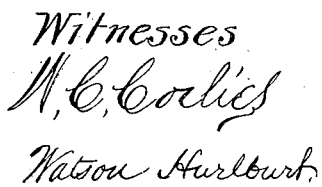 Witnesses
W. C. Corlies
Watson Hurlburt.